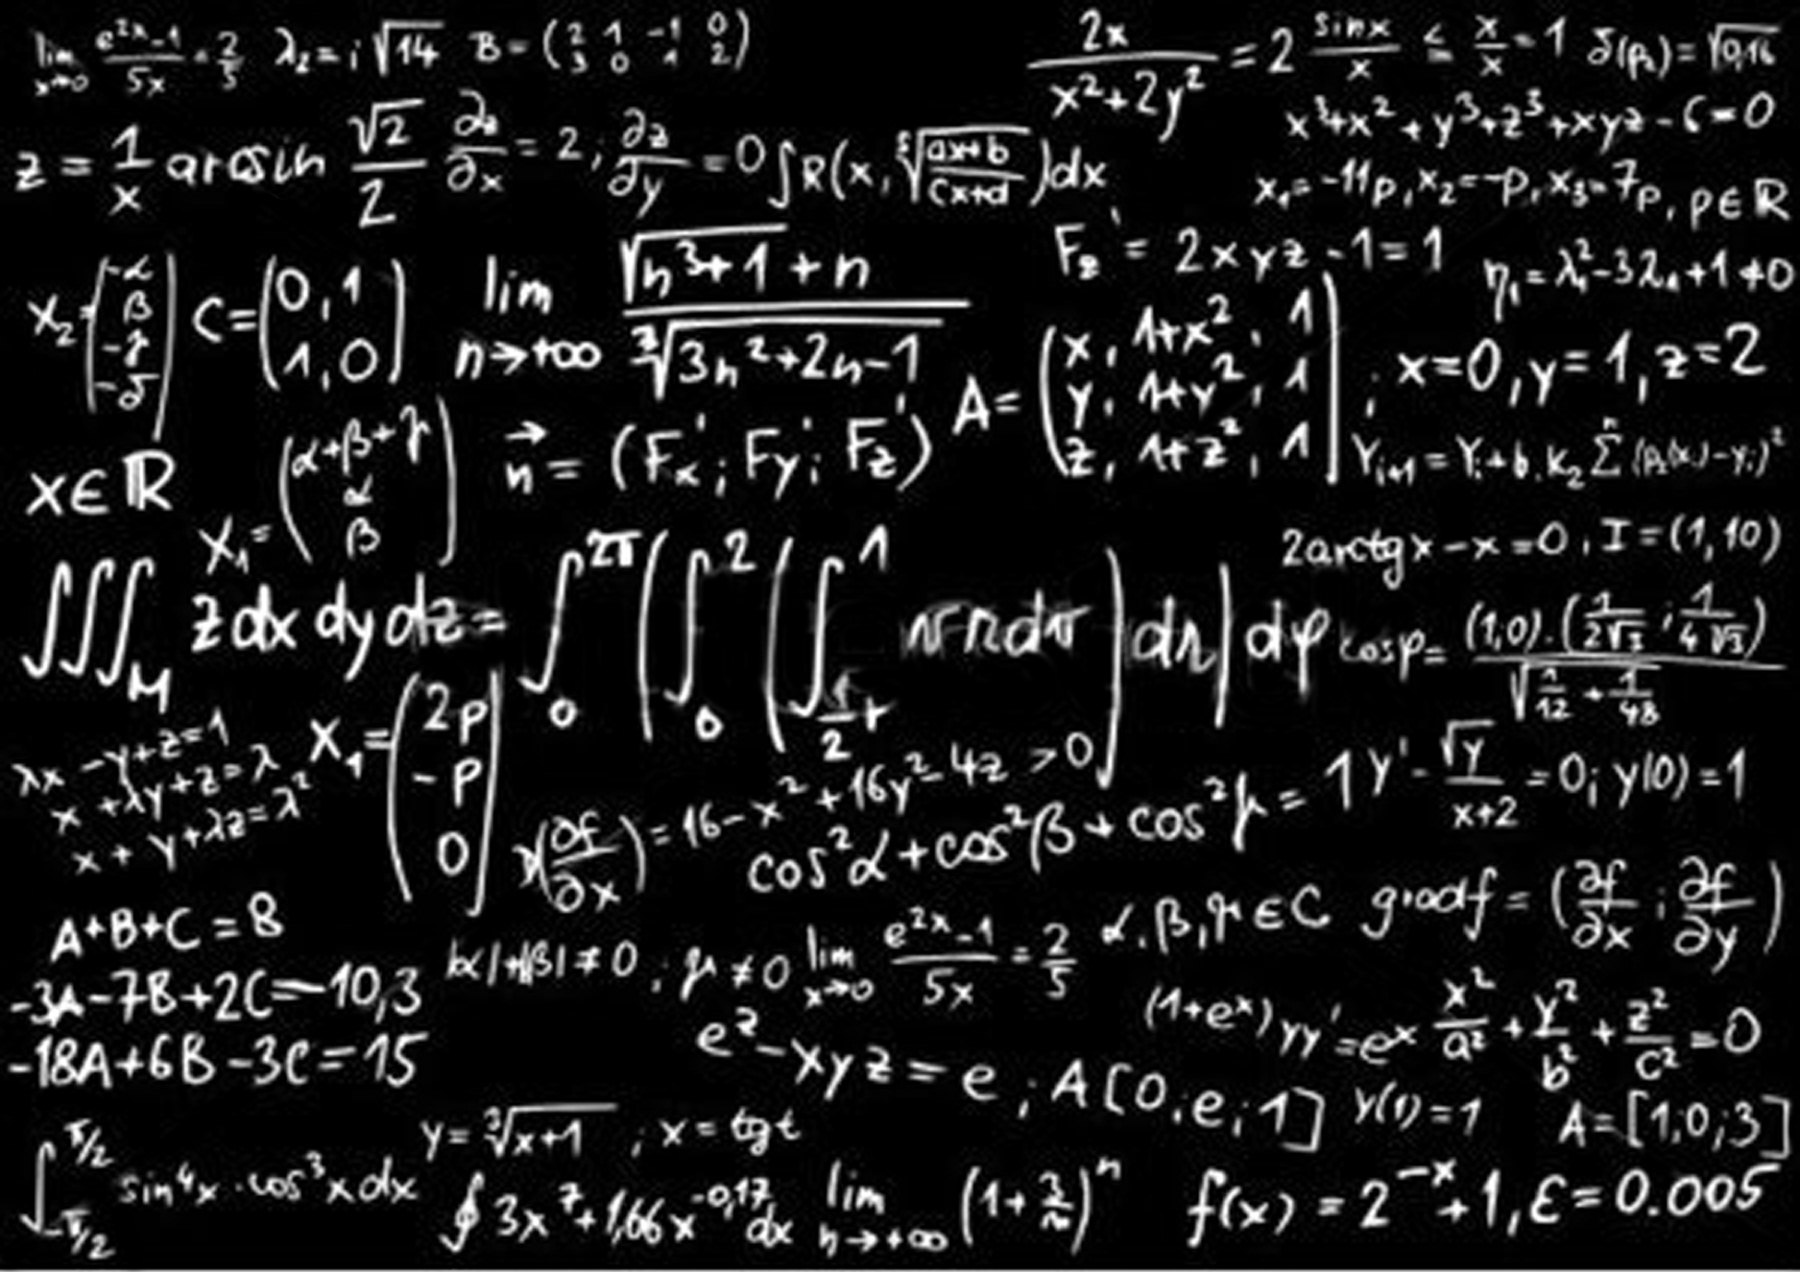 lim x→0 (e^(2x)-1)/5x = 2/5 λ₂ = i√14 B = (2 1 -1 0; 3 0 1 2)
2x/(x²+2y²) = 2 sinx/x ≤ x/x = 1 δ(p₂) = √0,16
x³+x²+y³+z³+xyz-6=0
z = 1/x arcsin √2/2 ∂z/∂x = 2; ∂z/∂y = 0 ∫R(x, √((ax+b)/(cx+d)))dx
x₁=-11p, x₂=-p, x₃=7p, p∈ℝ
F'z = 2xyz-1=1
η₁=λ₁²-3λ₁+1≠0
X₂=(-α; β; -γ; -δ) C=(0,1; 1,0) lim n→+∞ (√(n³+1)+n)/∛(3n²+2n-1)
A=(x, 1+x², 1; y, 1+y², 1; z, 1+z², 1); x=0, y=1, z=2
x∈ℝ X₁=(α+β+γ; α; β) n⃗ = (F'x; F'y; F'z)
Yi+1 = Yi+b.K₂ Σ (p₂(xi)-yi)²
2arctgx-x=0, I=(1,10)
∭M zdxdydz = ∫0^2π (∫0^2 (∫½r^1 vrdv) dr) dφ
cosφ = (1,0).(1/(2√3); 1/(4√3)) / √(1/12+1/48)
λx-y+z=1
x+λy+z=λ
x+y+λz=λ²
X₁=(2p; -p; 0)
(∂f/∂x) = 16-x²+16y²-4z >0
cos²α+cos²β+cos²γ=1
y'-√y/(x+2)=0; y(0)=1
A+B+C=8
-3A-7B+2C=-10,3
-18A+6B-3C=15
|α|+|β|≠0; γ≠0 lim x→0 (e^(2x)-1)/5x = 2/5
α,β,γ∈C gradf=(∂f/∂x; ∂f/∂y)
(1+e^x)yy'=e^x x²/a²+y²/b²+z²/c²=0
e^z-xyz=e; A[0;e;1] y(1)=1 A=[1;0;3]
∫-π/2^π/2 sin⁴x.cos³xdx
y=∛(x+1); x=tgt
∮3x⁷+1,66x^-0,17dx lim n→+∞ (1+3/n)^n
f(x)=2^-x+1, ε=0.005